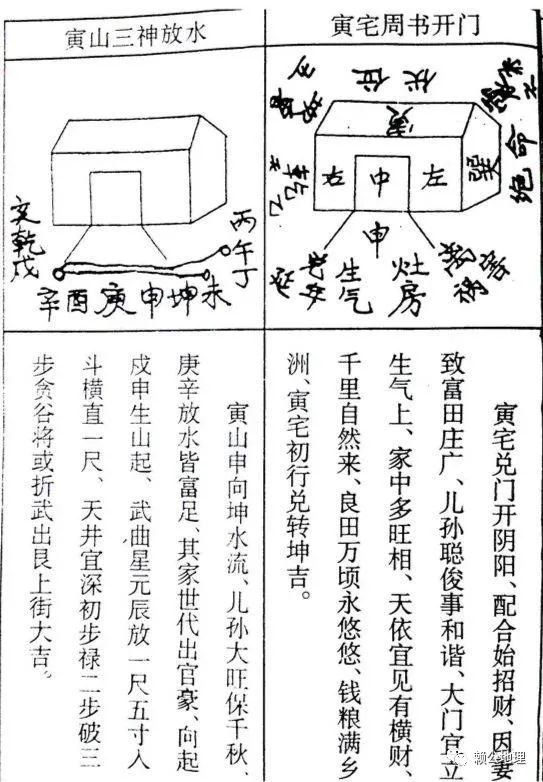 寅宅周书开门
伏位
寅
绝命
巽
右 中 左
申
生气
灶房
祸害
寅宅兑门开阴阳、配合始招财、因妻
致富田庄广、儿孙聪俊事和谐、大门宜立
生气上、家中多旺相、天依宜见有横财、
千里自然来、良田万顷永悠悠、钱粮满乡
洲、寅宅初行兑转坤吉。
寅山三神放水
乾戌
丙午丁
辛酉庚申坤未
寅山申向坤水流、儿孙大旺保千秋、
庚辛放水皆富足、其家世代出官豪、向起
戍申生山起、武曲星元辰放一尺五寸入
斗横直一尺、天井宜深初步禄二步破三
步贪谷将或折武出艮上街大吉。
赖公地理